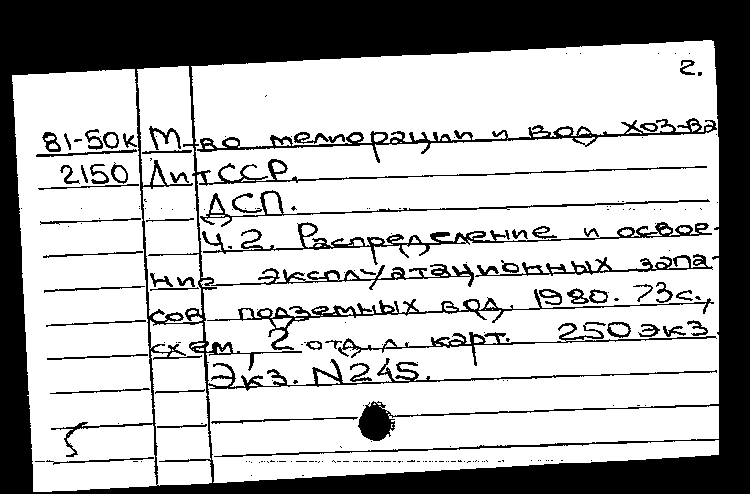 2.
81-50к М-во мелиорации и вод. хоз-ва
2150 ЛитССР.
ДСП.
Ч.2. Распределение и освое-
ние эксплуатационных запа-
сов подземных вод. 1980. 73с.,
схем., 2 отд. л. карт. 250 экз.
Экз. N245.